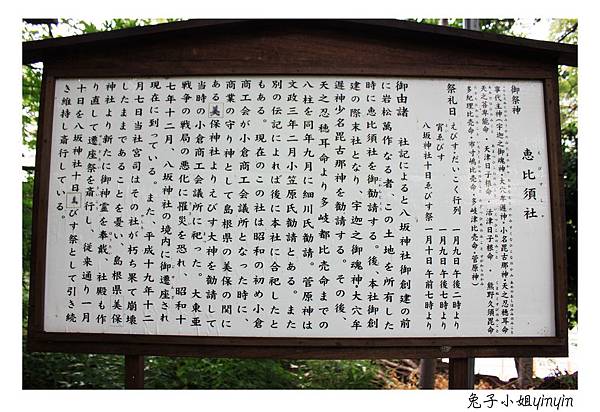 恵比須社
御祭神
事代主神(宇迦之御魂神・大穴牟遅神・小名毘古那神・天之忍穂耳命
天之菩卑能命・天津日子根命・活津日子根命・熊野久須毘命
多紀理比売命・市寸嶋比売命・多岐津比売命・菅原神)
祭礼日 えびす・だいこく行列 一月九日午後二時より
宵ゑびす 一月九日午後七時より
八坂神社十日ゑびす祭 一月十日午前七時より
御由諸 社記によると八坂神社御創建の前
に岩松萬作なる者、この土地を所有した
時に恵比須社を御勧請する。後、本社御創
建の際末社となり、宇迦之御魂神・大穴牟
遅神少名毘古那神を勧請する。その後、
天之忍穂耳命より多岐都比売命までの
八柱を同年九月に細川氏勧請。菅原神は
文政三年二月小笠原氏勧請とある。また
別の伝記によれば後に本社に合祀したと
もある。現在のこの社は昭和の初め小倉
商工会が小倉商工会議所となった時に、
商業の守り神として島根県の美保の関に
ある美保神社よりえびす大神を勧請して
当時の小倉商工会議所に祀った。大東亜
戦争の戦局の悪化に罹災を恐れ、昭和十
七年十二月、八坂神社の境内に御遷座され
現在に到っている。また、平成十九年十二
月七日当社宮司はその社が朽ち果て崩壊
したままであることを憂い、島根県美保
神社より新たに御神霊を奉戴、社殿も作
り直して遷座祭を斎行し、従来通り一月
十日を八坂神社十日ゑびす祭として引き続
き維持し斎行している。
兔子小姐yinyin